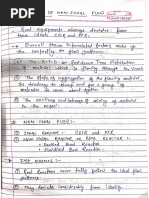 OF NON-IDEAL FLOW
- Real equipments always deviates from
their ideals CSTR and PFR.
- Overall three interrelated factors make up
the contacting or flow patterns:
(1) The R.T.D. or Residence Time Distribution
material which is flowing through the vessel
(2) The state of aggregation of the flowing material
its tendency to clump and for a group of
material to move about together
(3) The earliness and lateness of mixing of material
in the vessel
NON-IDEAL FLOW :-
IDEAL REACTOR : CSTR and PFR
NON IDEAL REACTOR or REAL REACTOR :-
Packed Bed Reactor
Fluidized Bed Reactor
IMP. POINTS :-
Real Reactors never fully follow the ideal flow
patterns.
They deviate considerably from ideality.